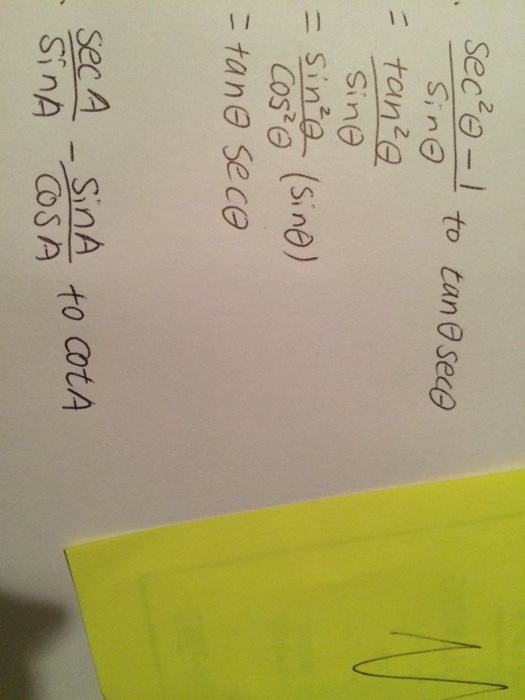 sec²θ - 1 / sinθ to tanθ secθ
= tan²θ / sinθ
= sin²θ / cos²θ (sinθ)
= tanθ secθ
secA / sinA - sinA / cosA to cotA